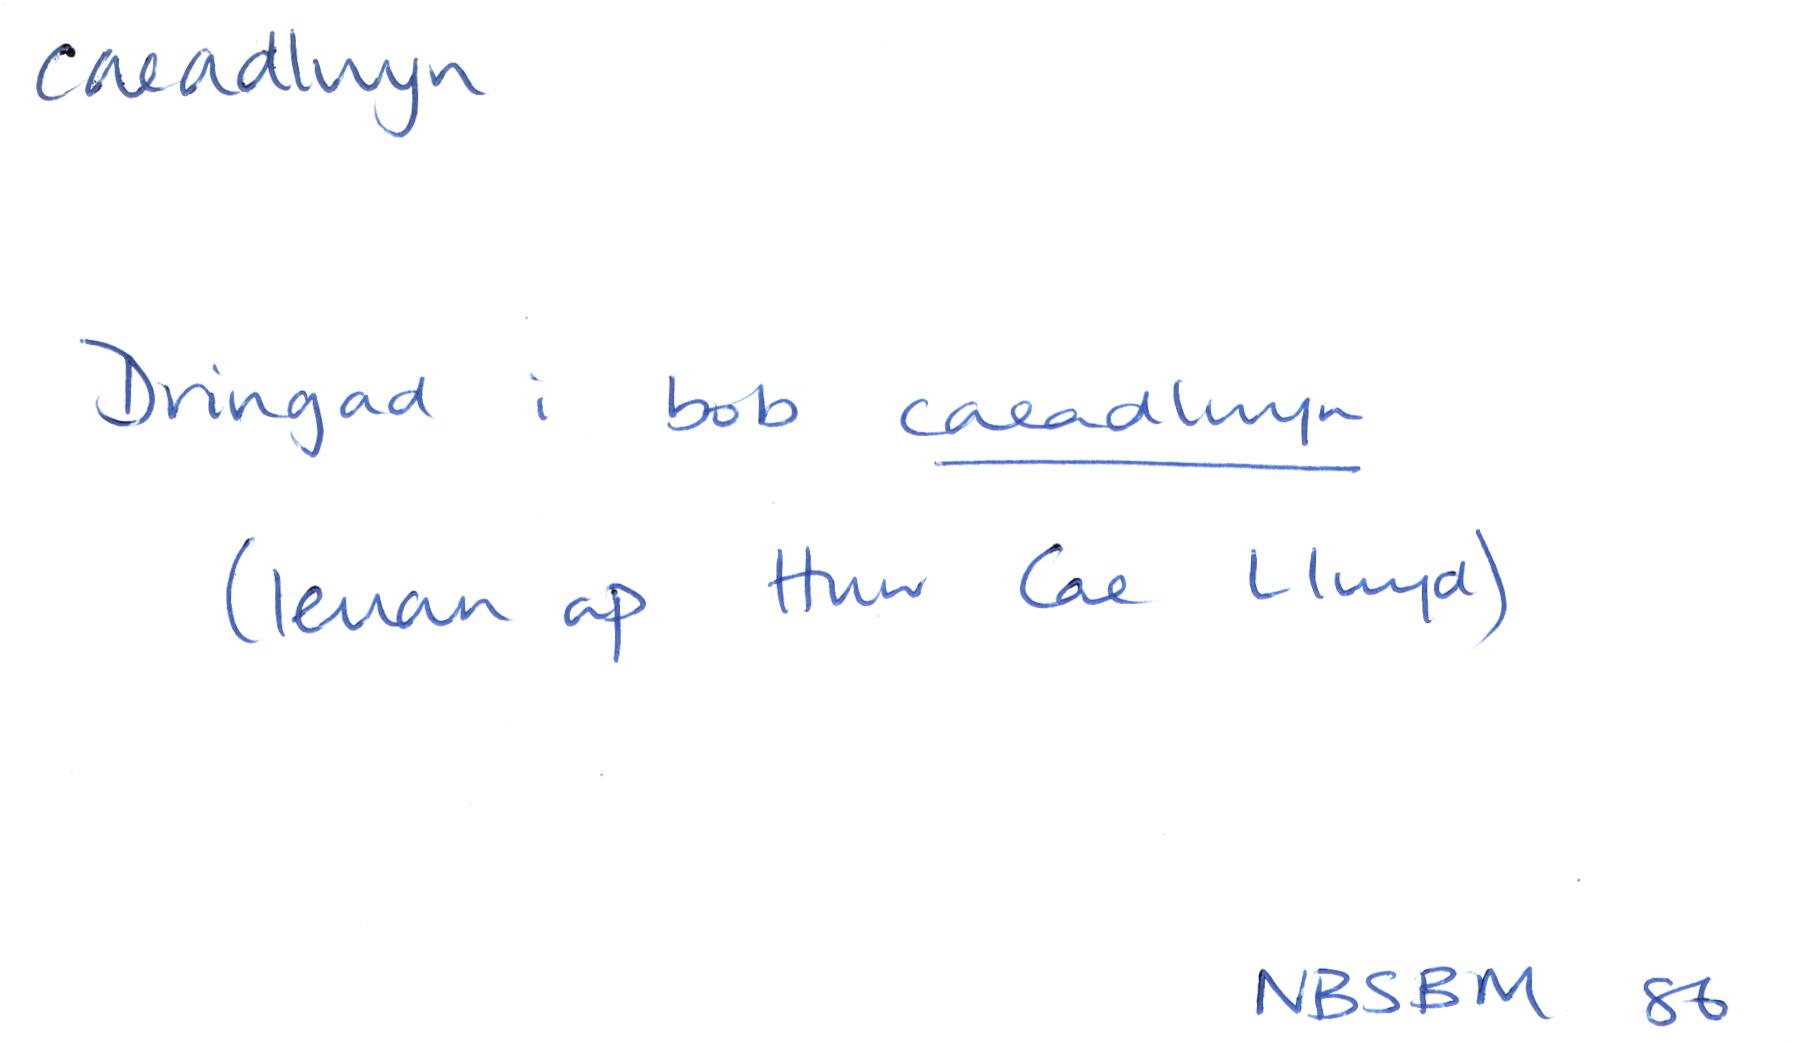 caeadlwyn
Dringad i bob caeadlwyn
(Ieuan ap Huw Cae Llwyd)
NBSBM 86